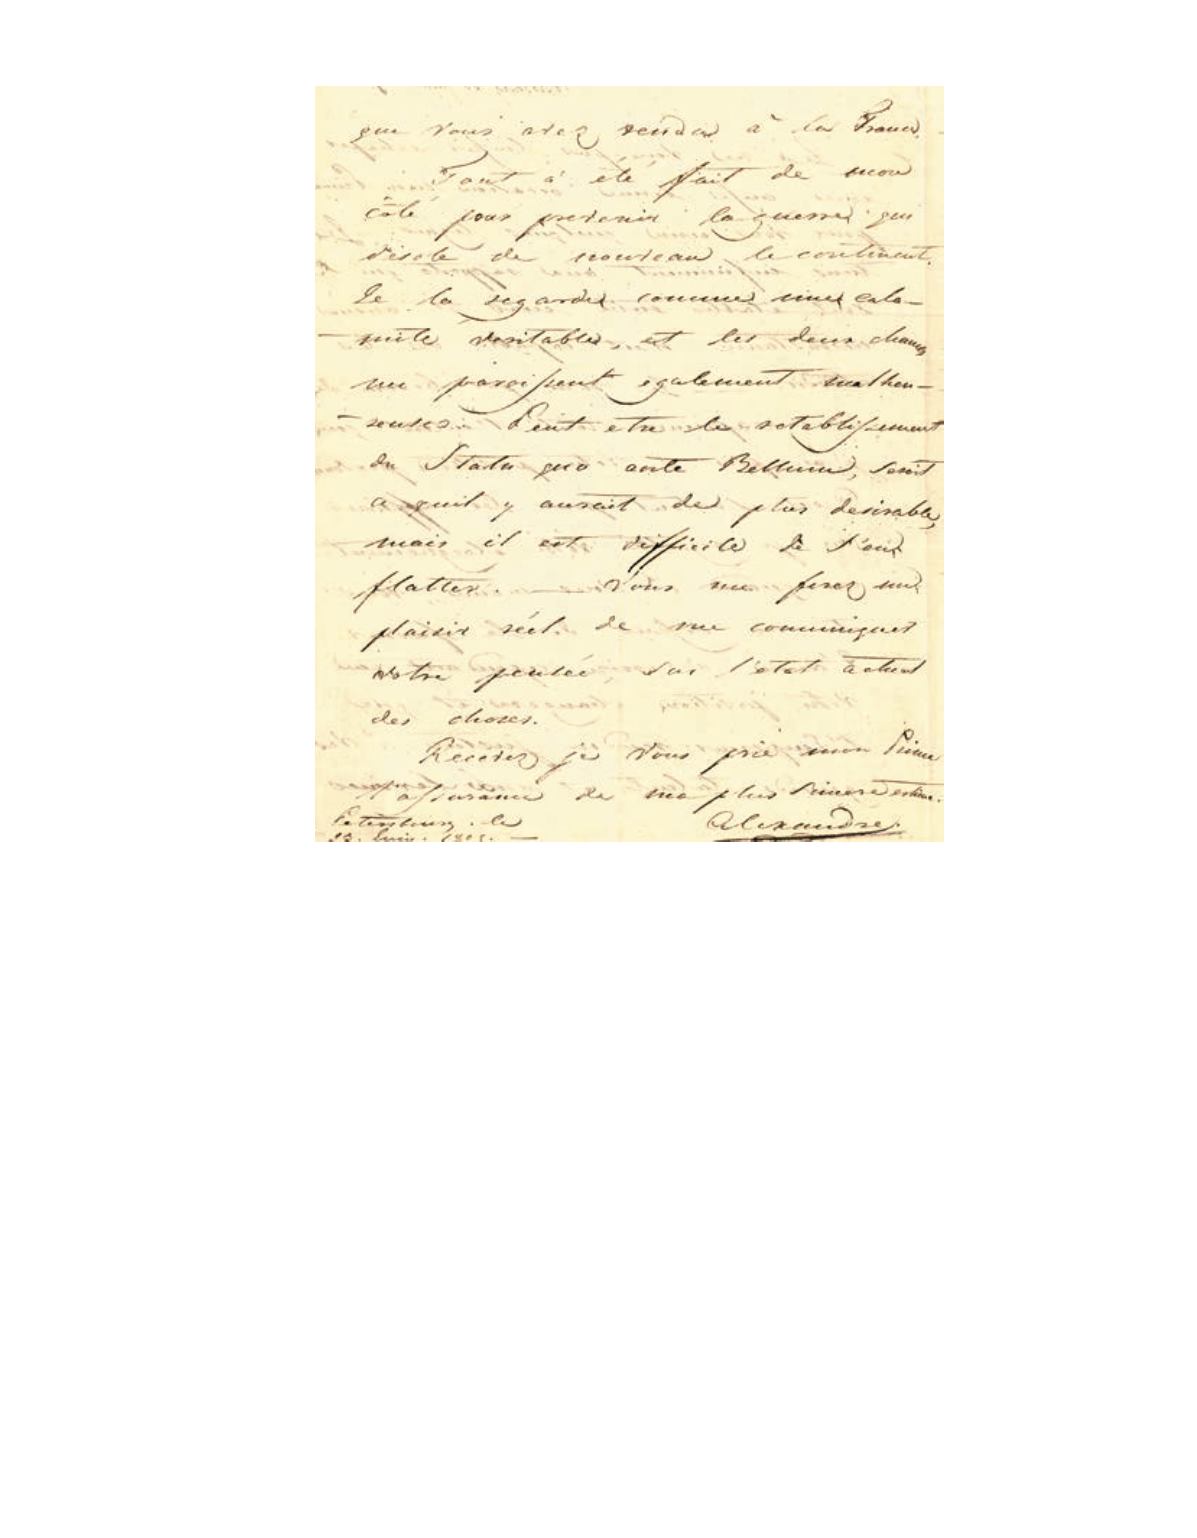 que vous avez rendu à la France.
Tout a été fait de mon
côté pour prevenir la guerre qui
désole de nouveau le continent.
Je la regarde comme une cala-
mité veritable, et les deux chances
me paroissent egalement malheu-
reuses. Peut etre le retablissement
du Statu quo ante Bellum, seroit
ce qu'il y aurait de plus desirable,
mais il est difficile de s'en
flatter. — Vous me ferez un
plaisir réel de me communiquer
votre pensée, sur l'etat actuel
des choses.
Recevez je vous prie mon Prince
l'assurance de ma plus sincere estime.
Petersbourg. le
Alexandre.